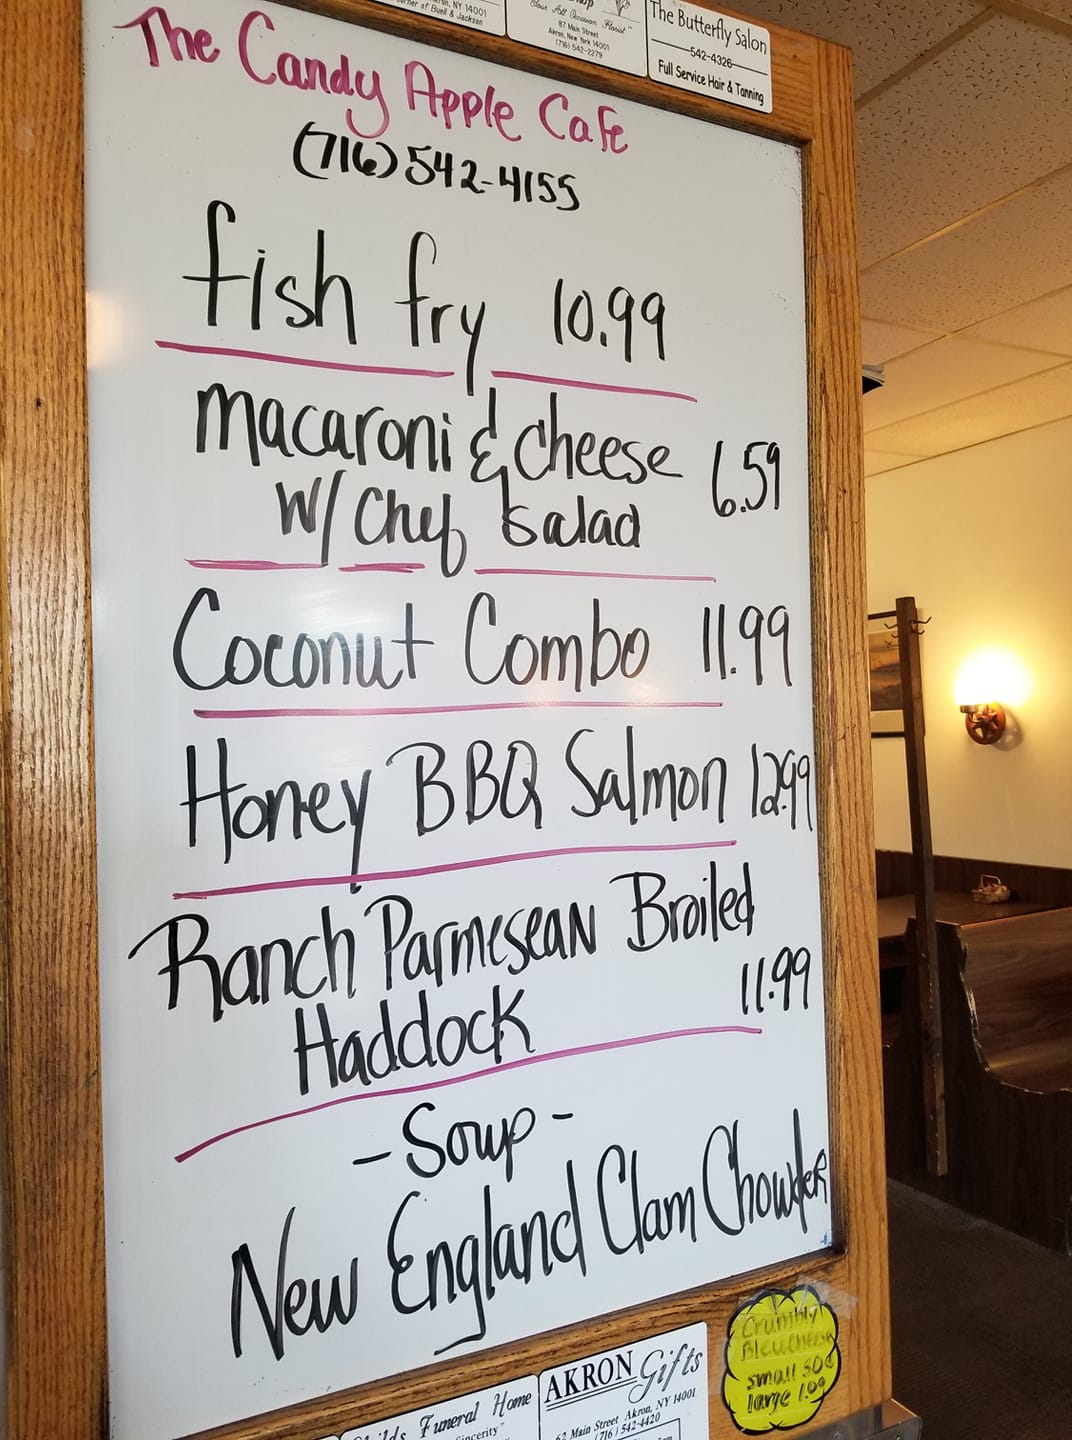 NY 14001
corner of Buell & Jackson
Your All Occasion Florist
87 Main Street
Akron, New York 14001
(716) 542-2279
The Butterfly Salon
542-4326
Full Service Hair & Tanning
The Candy Apple Cafe
(716) 542-4155
fish fry 10.99
macaroni & cheese 6.59
w/ chef salad
Coconut Combo 11.99
Honey BBQ Salmon 12.99
Ranch Parmesean Broiled
Haddock 11.99
- Soup -
New England Clam Chowder
Crumbly
Bleu Cheese
small 50¢
large 1.00
Funeral Home
AKRON Gifts
62 Main Street Akron, NY 14001
(716) 542-4420